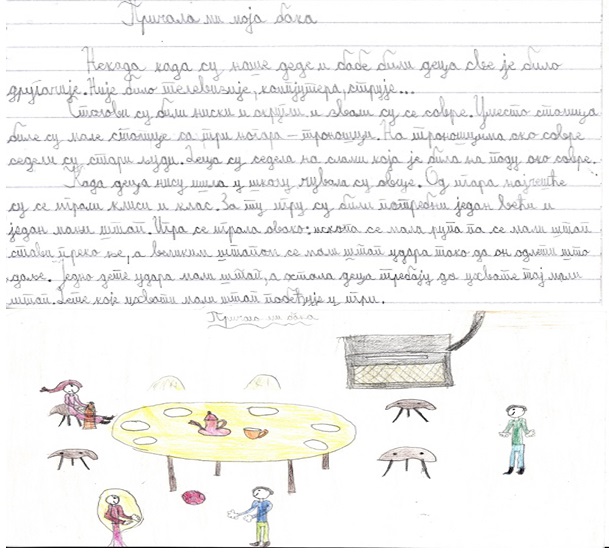 Причала ми моја бака
Некада када су наше деде и бабе били деца све је било
другачије. Није било телевизије, компјутера, струје...
Столови су били ниски и округли и звали су се совре. Уместо столица
биле су мале столице са три ногара – троношци. На троношцима око совре
седели су стари људи. Деца су седела на слами која је била на поду око совре.
Када деца нису ишла у школу чувала су овце. Од игара најчешће
су се играли клиси и клас. За ту игру су били потребни један већи и
један мањи штап. Игра се играла овако: ископа се мала рупа па се мали штап
стави преко ње, а великим штапом се мали штап удара тако да он одлети што
даље. Једно дете удара мали штап, а остала деца требају да ухвате тај мали
штап. Дете које ухвати мали штап побеђује у игри.
Причала ми бака